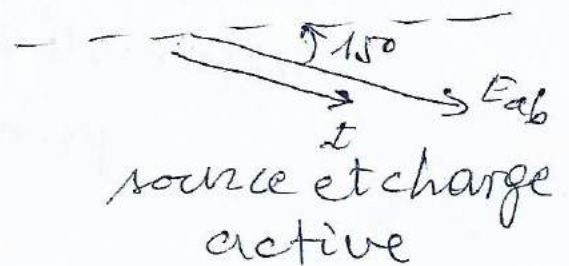 150
Eab
I
source et charge
active